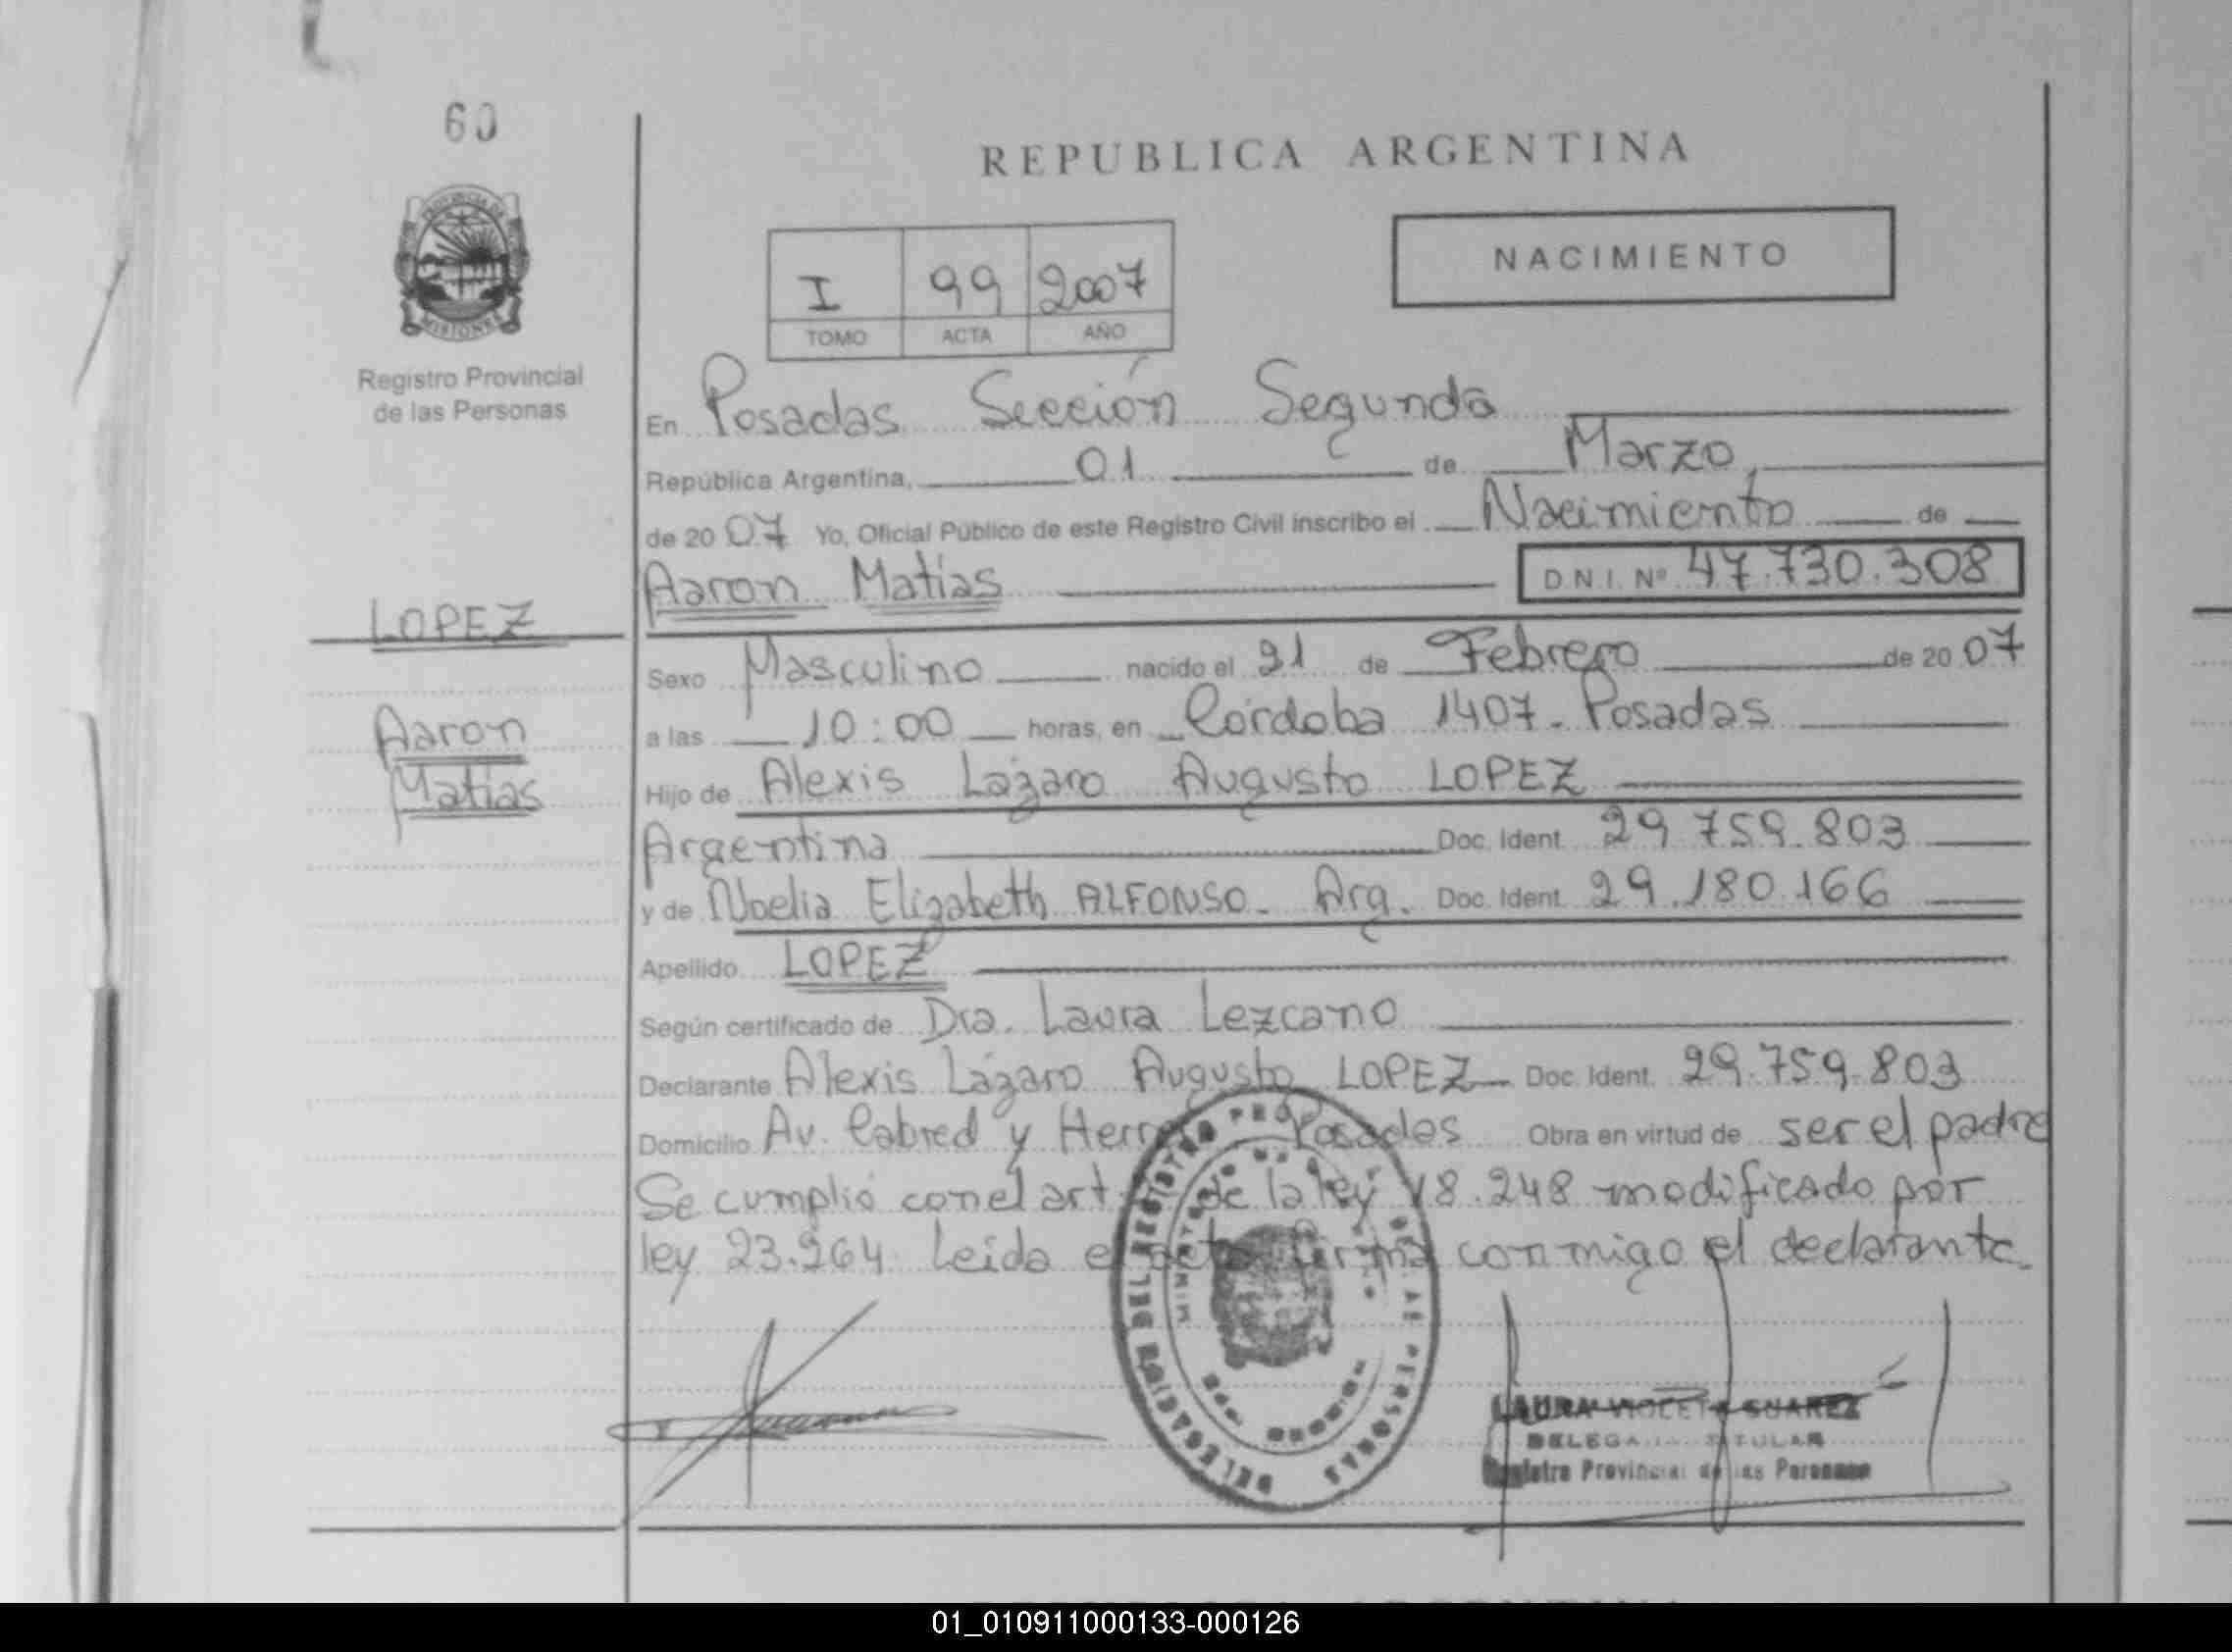 60
REPUBLICA ARGENTINA
PROVINCIA DE
MISIONES
Registro Provincial
de las Personas
I 99 2007
TOMO ACTA AÑO
NACIMIENTO
En Posadas Sección Segunda
República Argentina, 01 de Marzo,
de 2007 Yo, Oficial Público de este Registro Civil inscribo el Nacimiento de
Aaron Matías D.N.I. Nº 47.730.308
LOPEZ
Sexo Masculino nacido el 21 de Febrero de 2007
Aaron
Matías
a las 10:00 horas, en Córdoba 1407 - Posadas
Hijo de Alexis Lázaro Augusto LOPEZ
Argentina Doc. Ident. 29.759.803
y de Noelia Elizabeth ALFONSO - Arg. Doc. Ident. 29.180.166
Apellido LOPEZ
Según certificado de Dra. Laura Lezcano
Declarante Alexis Lázaro Augusto LOPEZ Doc. Ident. 29.759.803
Domicilio Av. Cabred y Posadas Obra en virtud de ser el padre
Se cumplió con el art. de la ley 18.248 modificado por
ley 23.264. Leida el acta firma conmigo el declarante.
LAURA VIOLETA SUAREZ
DELEGADA TITULAR
Registro Provincial de las Personas
01_010911000133-000126